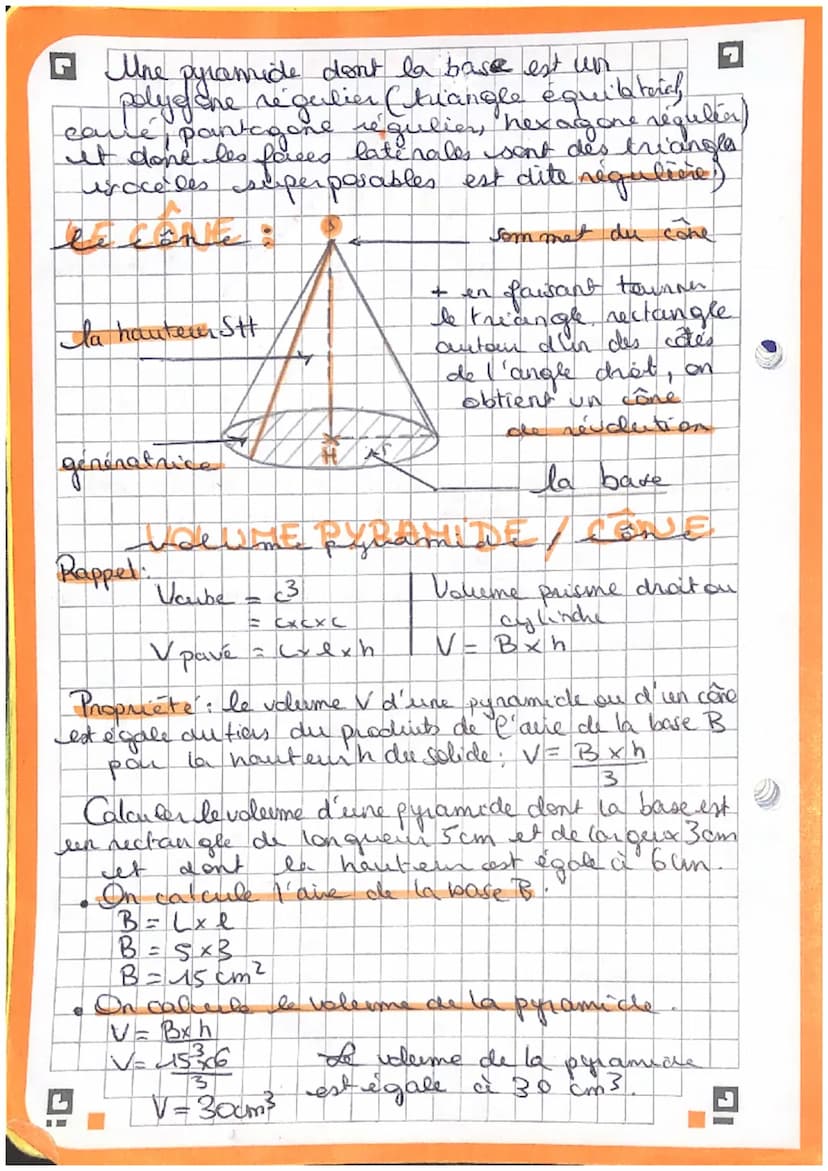 Une pyramide dont la base est un
polygône régulier (triangle équilatéral,
carré, pantagone régulier, hexagone régulier)
et dont les faces latérales sont des triangles
isocèles superposables est dite régulière)
LE CÔNE :
S
sommet du cône
+ en faisant tourner
le triangle rectangle
autour d'un des côtés
de l'angle droit, on
obtient un cône
de révolution
la hauteur SH
génératrice
H
r
la base
VOLUME PYRAMIDE / CÔNE
Rappel:
Vcube = c³
= c×c×c
V pavé = L×l×h
Volume prisme droit ou
cylindre
V = B×h
Propriété : le volume V d'une pyramide ou d'un cône
est égale au tiers du produits de l'aire de la base B
par la hauteur h du solide : V = B×h
3
Calculer le volume d'une pyramide dont la base est
un rectangle de longueur 5cm et de largeur 3cm
et dont la hauteur est égale à 6cm.
• On calcule l'aire de la base B.
B = L×l
B = 5×3
B = 15 cm²
• On calcule le volume de la pyramide.
V = B×h
3
V = 15×6
3
V = 30cm³
Le volume de la pyramide
est égale à 30 cm³.